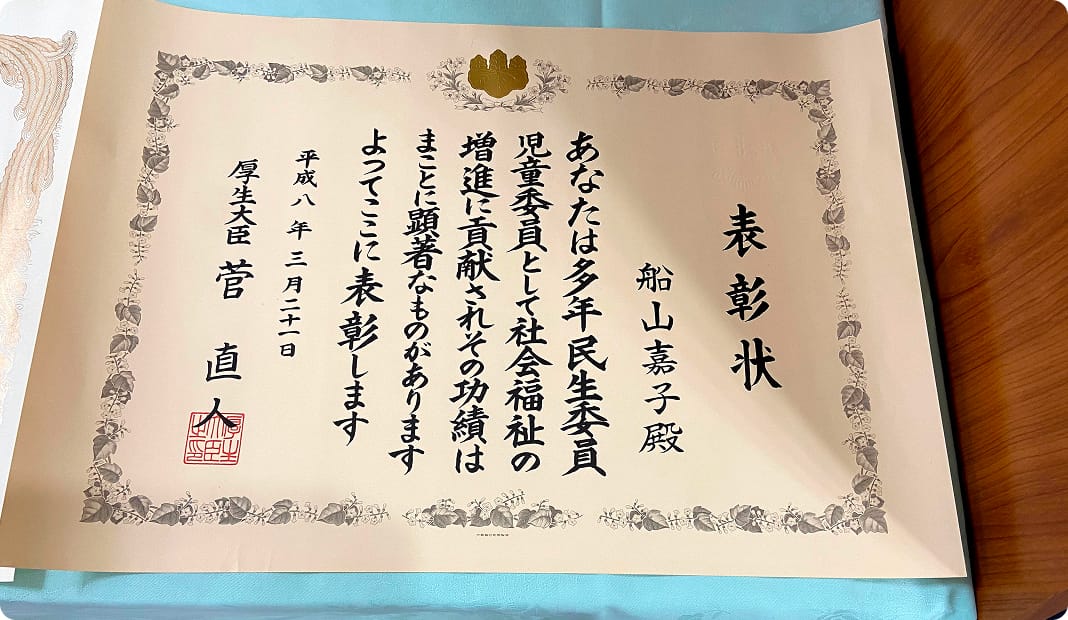 表彰状
船山嘉子殿
あなたは多年民生委員
児童委員として社会福祉の
増進に貢献されその功績は
まことに顕著なものがあります
よってここに表彰します
平成八年三月二十一日
厚生大臣 菅直人